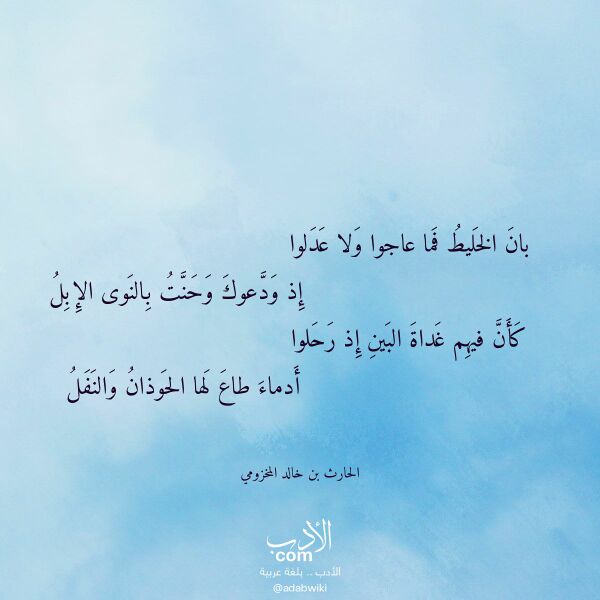 بانَ الخَليطُ فَما عاجوا وَلا عَدَلوا
إِذ وَدَّعوكَ وَحَنَّتُ بِالنَوى الإِبِلُ
كَأَنَّ فيهِم غَداةَ البَينِ إِذ رَحَلوا
أَدماءَ طاعَ لَها الحَوذانُ وَالنَفَلُ
الحارث بن خالد المخزومي
الأدب
com
الأدب .. بلغة عربية
@adabwiki